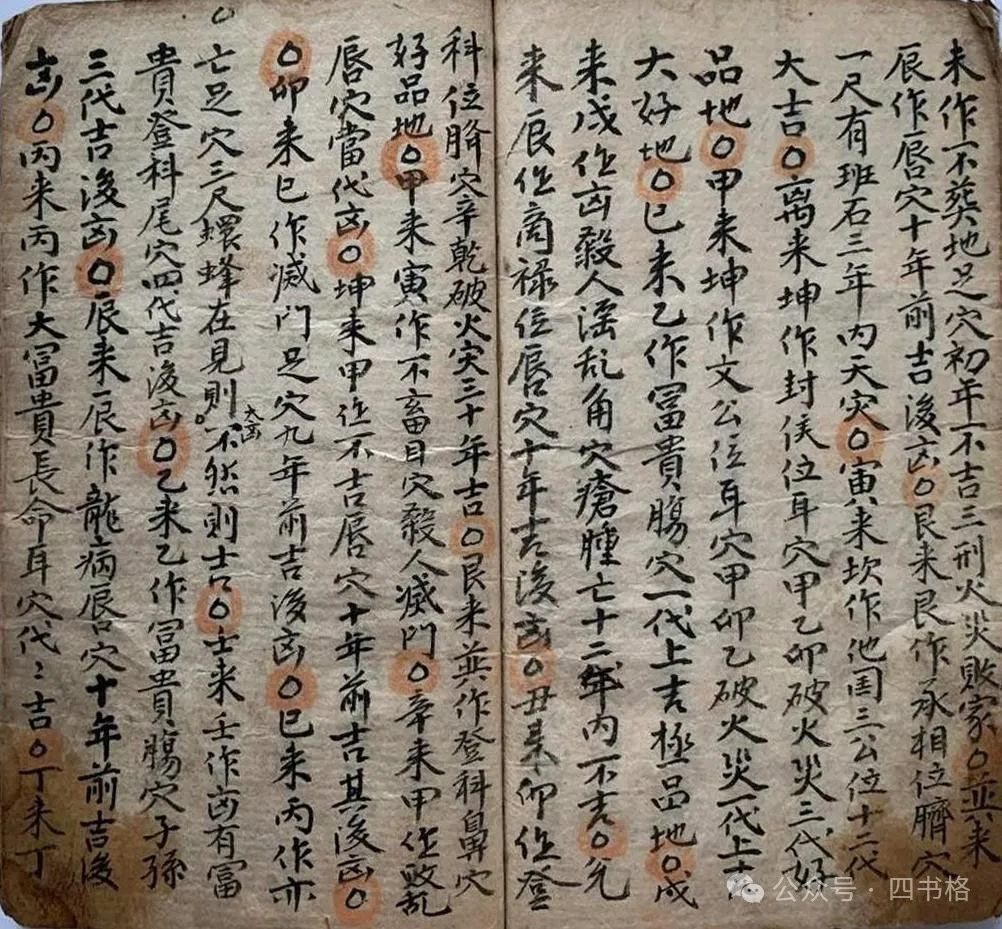 未作不葬地足穴初年不吉三刑火災敗家〇並来
辰作唇穴十年前吉後凶〇艮来艮作承相位臍穴
一尺有班石三年内天灾〇寅来坎作他国三公位十二代
大吉〇离来坤作封侯位耳穴甲乙卯破火災三代好
品地〇甲来坤作文公位耳穴甲卯乙破火災一代上吉
大好地〇巳来乙作冨貴腸穴一代上吉極品地〇戌
来戌作凶殺人淫乱角穴瘡腫亡十二年内不吉〇兑
来辰作商禄位唇穴十年吉後凶〇丑来卯作登
科位臍穴辛乾破火灾三十年吉〇艮来並作登科鼻穴
好品地〇甲来寅作不畜目穴殺人滅門〇辛来甲作敗乱
唇穴當代凶〇坤来甲作不吉唇穴十年前吉其後凶〇
〇卯来巳作滅門足穴九年前吉後凶〇巳来丙作亦
亡足穴三尺蠉蜂在見則大凶不然則吉〇壬来壬作凶有富
貴登科尾穴四代吉後凶〇乙来乙作冨貴腸穴子孫
三代吉後凶〇辰来辰作龍病唇穴十年前吉後
凶〇丙来丙作大冨貴長命耳穴代〻吉〇丁来丁
公众号·四书格